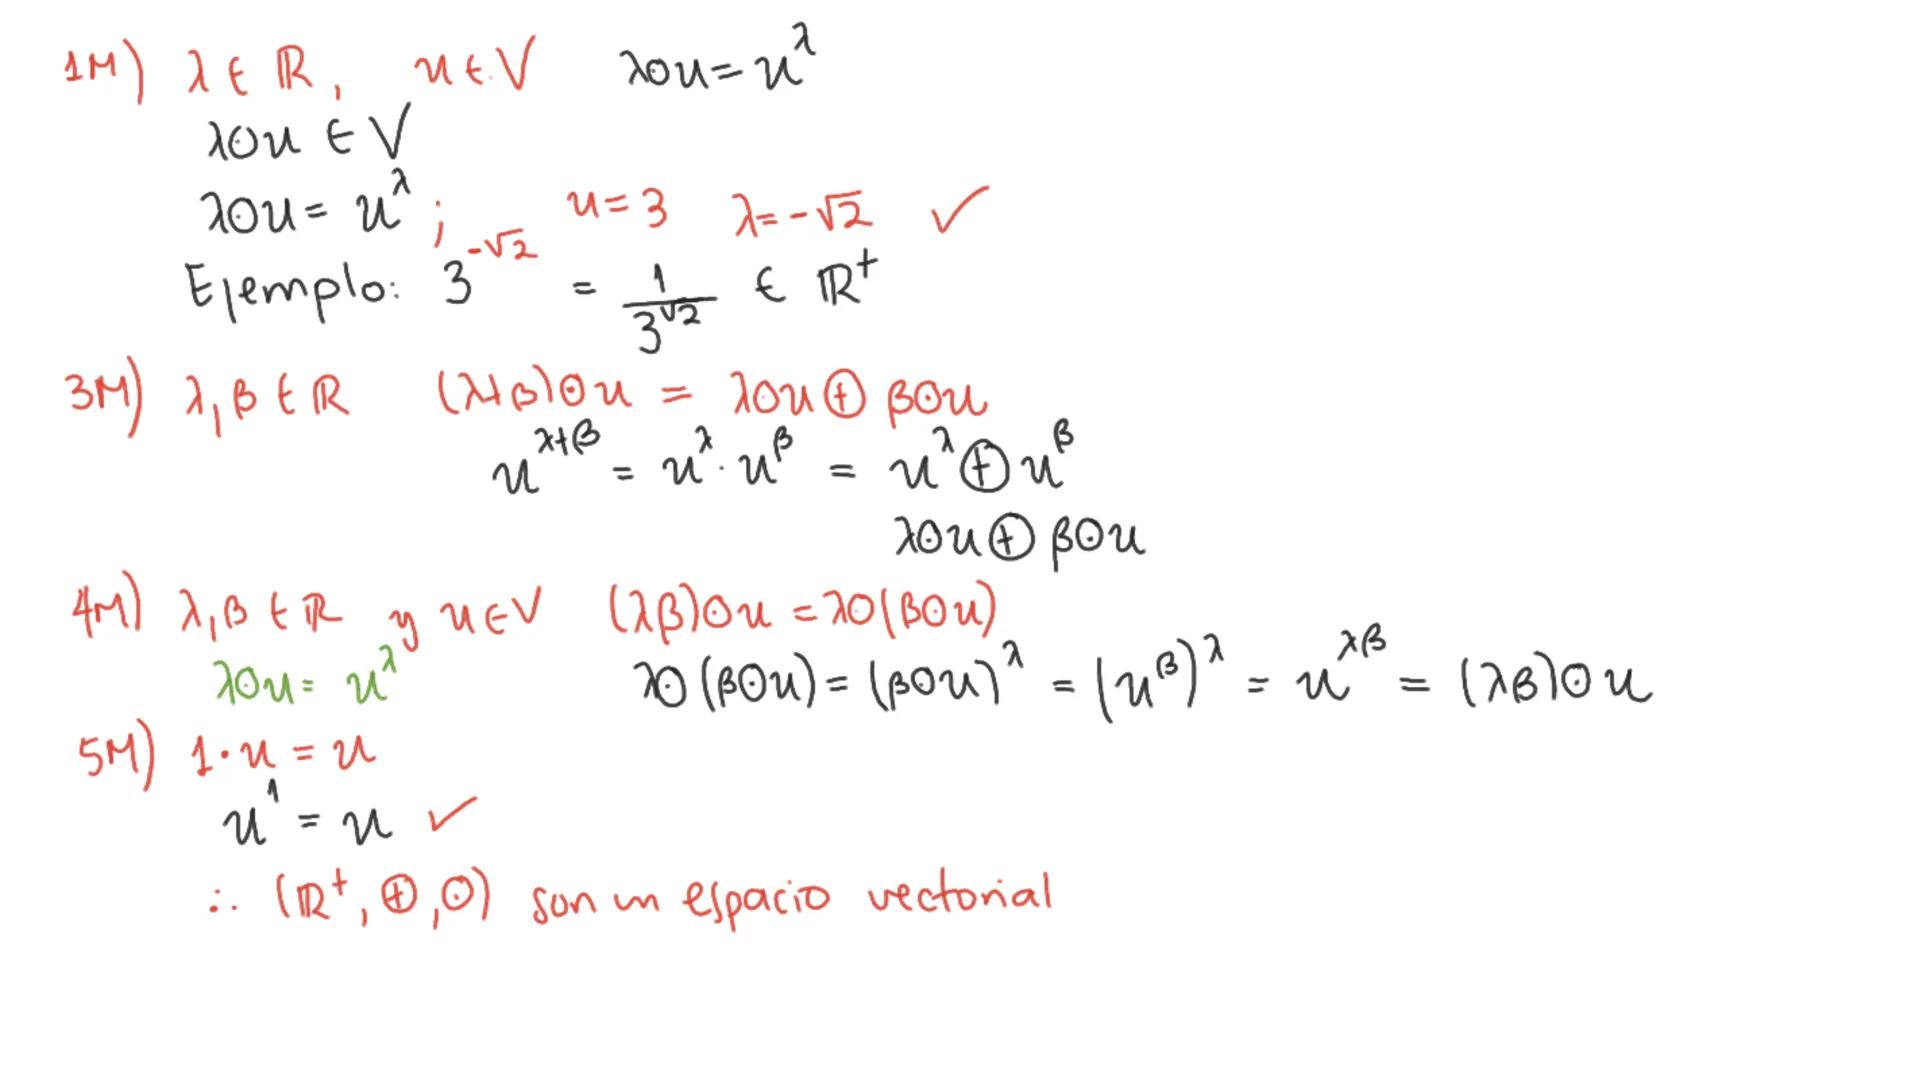 1M) λ ∈ ℝ, u ∈ V λ⊙u = u^λ
λ⊙u ∈ V
λ⊙u = u^λ ; u = 3 λ = -√2 ✓
Ejemplo: 3^(-√2) = 1/3^(√2) ∈ ℝ⁺
3M) λ, β ∈ ℝ (λ+β)⊙u = λ⊙u ⊕ β⊙u
u^(λ+β) = u^λ · u^β = u^λ ⊕ u^β
λ⊙u ⊕ β⊙u
4M) λ, β ∈ ℝ y u ∈ V (λβ)⊙u = λ⊙(β⊙u)
λ⊙u = u^λ λ⊙(β⊙u) = (β⊙u)^λ = (u^β)^λ = u^(λβ) = (λβ)⊙u
5M) 1·u = u
u^1 = u ✓
∴ (ℝ⁺, ⊕, ⊙) son un espacio vectorial